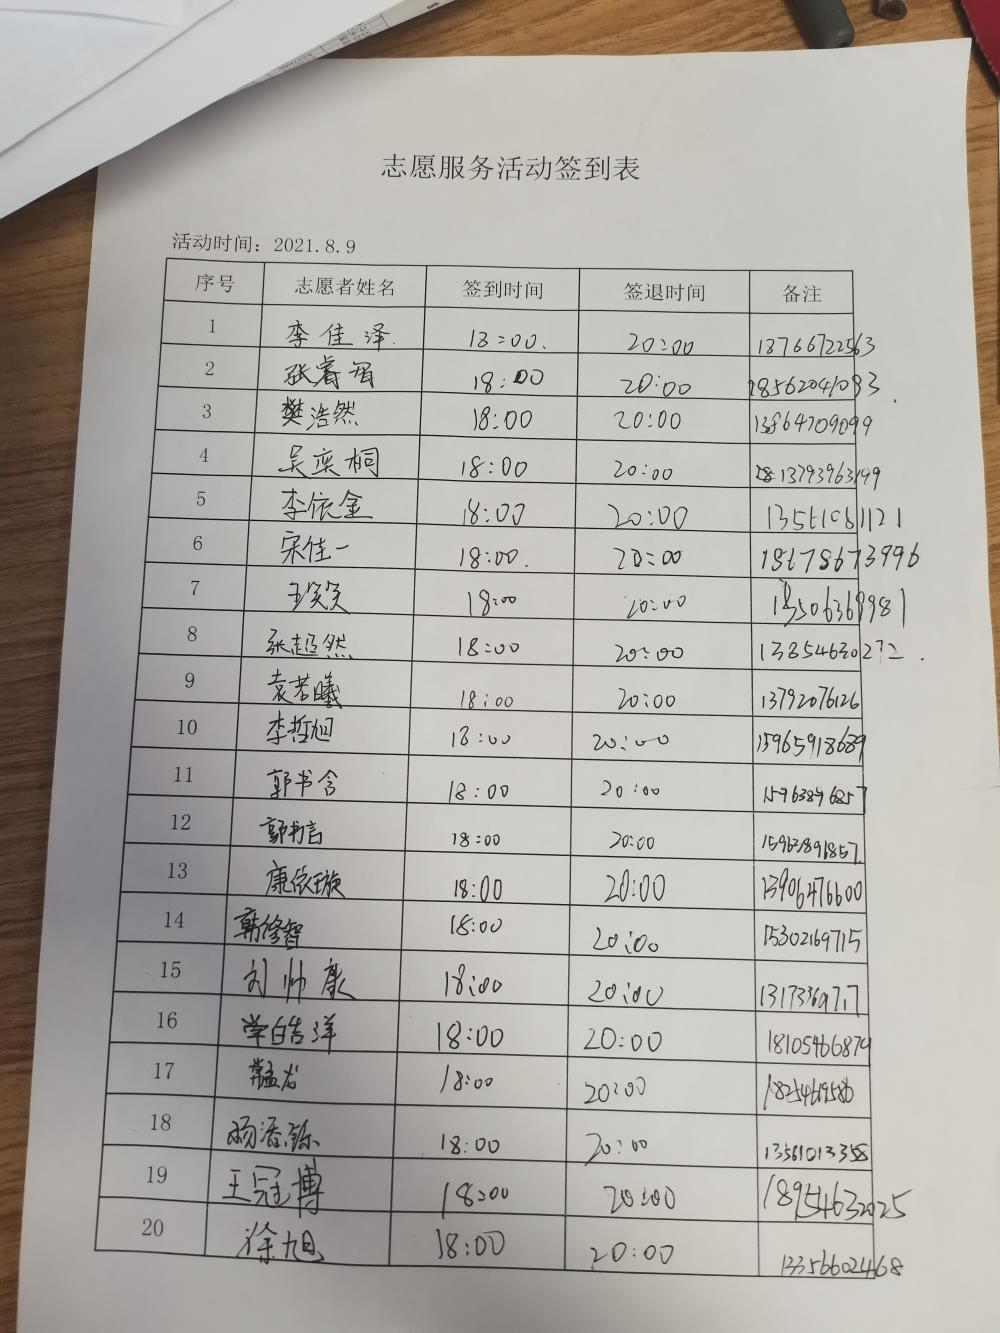 志愿服务活动签到表
活动时间：2021.8.9
序号 志愿者姓名 签到时间 签退时间 备注
1 李佳泽 18:00. 20:00 18766722563
2 张睿 18:00 20:00 18562041093.
3 樊浩然 18:00 20:00 13864709099
4 吴奕桐 18:00 20:00 13793963199
5 李依金 18:00 20:00 13561081121
6 宋佳一 18:00. 20:00 18678673996
7 18:00 20:00
8 张超然 18:00 20:00
9 袁若曦 18:00 20:00 13792076126
10 李哲旭 18:00 20:00 15965918689
11 郭书含 18:00 20:00 15963896857
12 郭书言 18:00 20:00 15963896857.
13 康依璇 18:00 20:00 13906476600
14 韩修智 18:00 20:00 15302169715
15 刘帅康 18:00 20:00
16 李皓洋 18:00 20:00 18105466879
17 18:00 20:00
18 18:00 20:00 13561013358
19 王冠博 18:00 20:00 18954632025
20 徐旭 18:00 20:00 13356602468